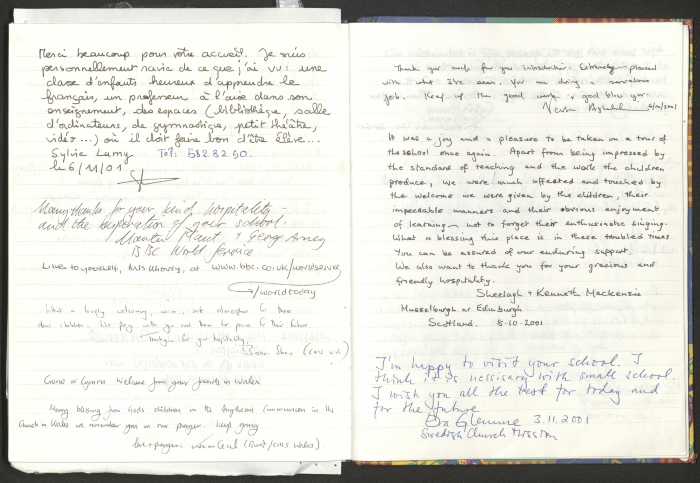 Merci beaucoup pour votre accueil. Je suis
personnellement ravie de ce que j'ai vu : une
classe d'enfants heureux d'apprendre le
français, un professeur à l'aise dans son
enseignement, des espaces (bibliothèque, salle
d'ordinateurs, de gymnastique, petit théâtre,
vidéo...) où il doit faire bon d'être élève...
Sylvie Lamy Tél: 582 82 50.
le 6/11/01
Many thanks for your kind hospitality -
and the inspiration of your school.
& George Arney
BBC World Service
Listen to yourself, at www.bbc.co.uk/worldservice/
/worldtoday
What a lovely welcoming, warm, safe atmosphere for these
dear children. We pray with you and them for peace for their future.
Thank you for your hospitality.
(CMS UK)
Croeso o Cymru Welcome from your friends in Wales
Many blessings from Gods children in the Anglican Communion in the
Church in Wales we remember you in our prayers. Keep going
love & prayers (CMS Wales)
Thank you much for your introduction. Extremely pleased
with what I've seen. You are doing a marvellous
job. Keep up the good work & god bless you.
6/10/2001
It was a joy and a pleasure to be taken on a tour of
the school once again. Apart from being impressed by
the standard of teaching and the work the children
produce, we were much affected and touched by
the welcome we were given by the children, their
impeccable manners and their obvious enjoyment
of learning - not to forget their enthusiastic singing.
What a blessing this place is in these troubled times
You can be assured of our enduring support.
We also want to thank you for your gracious and
friendly hospitality.
Sheelagh + Kenneth Mackenzie
Musselburgh nr Edinburgh
Scotland. 8-10-2001
I'm happy to visit your school. I
think it is nessisary with small school.
I wish you all the best for today and
for the future
Eva 3.11.2001
Swedish Church Mission